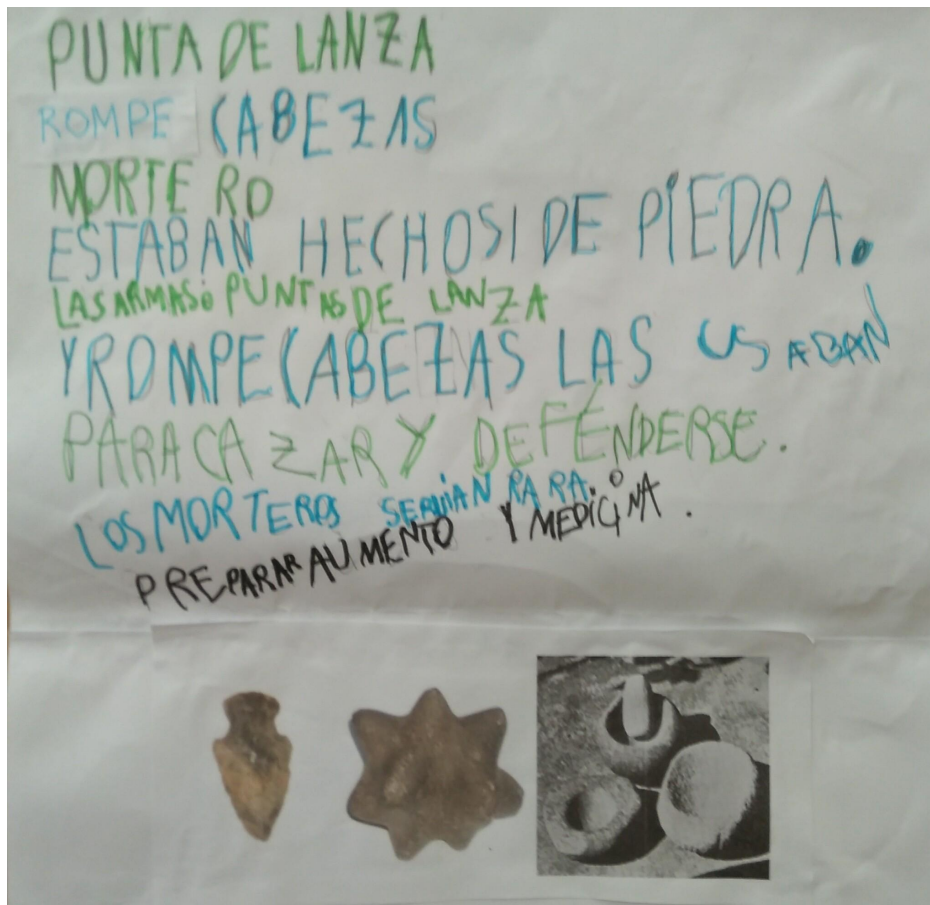 PUNTA DE LANZA
ROMPE CABEZAS
MORTERO
ESTABAN HECHOS DE PIEDRA.
LAS ARMAS: PUNTAS DE LANZA
Y ROMPECABEZAS LAS USABAN
PARA CAZAR Y DEFENDERSE.
LOS MORTEROS SERVIAN PARA
PREPARAR ALIMENTO Y MEDICINA.